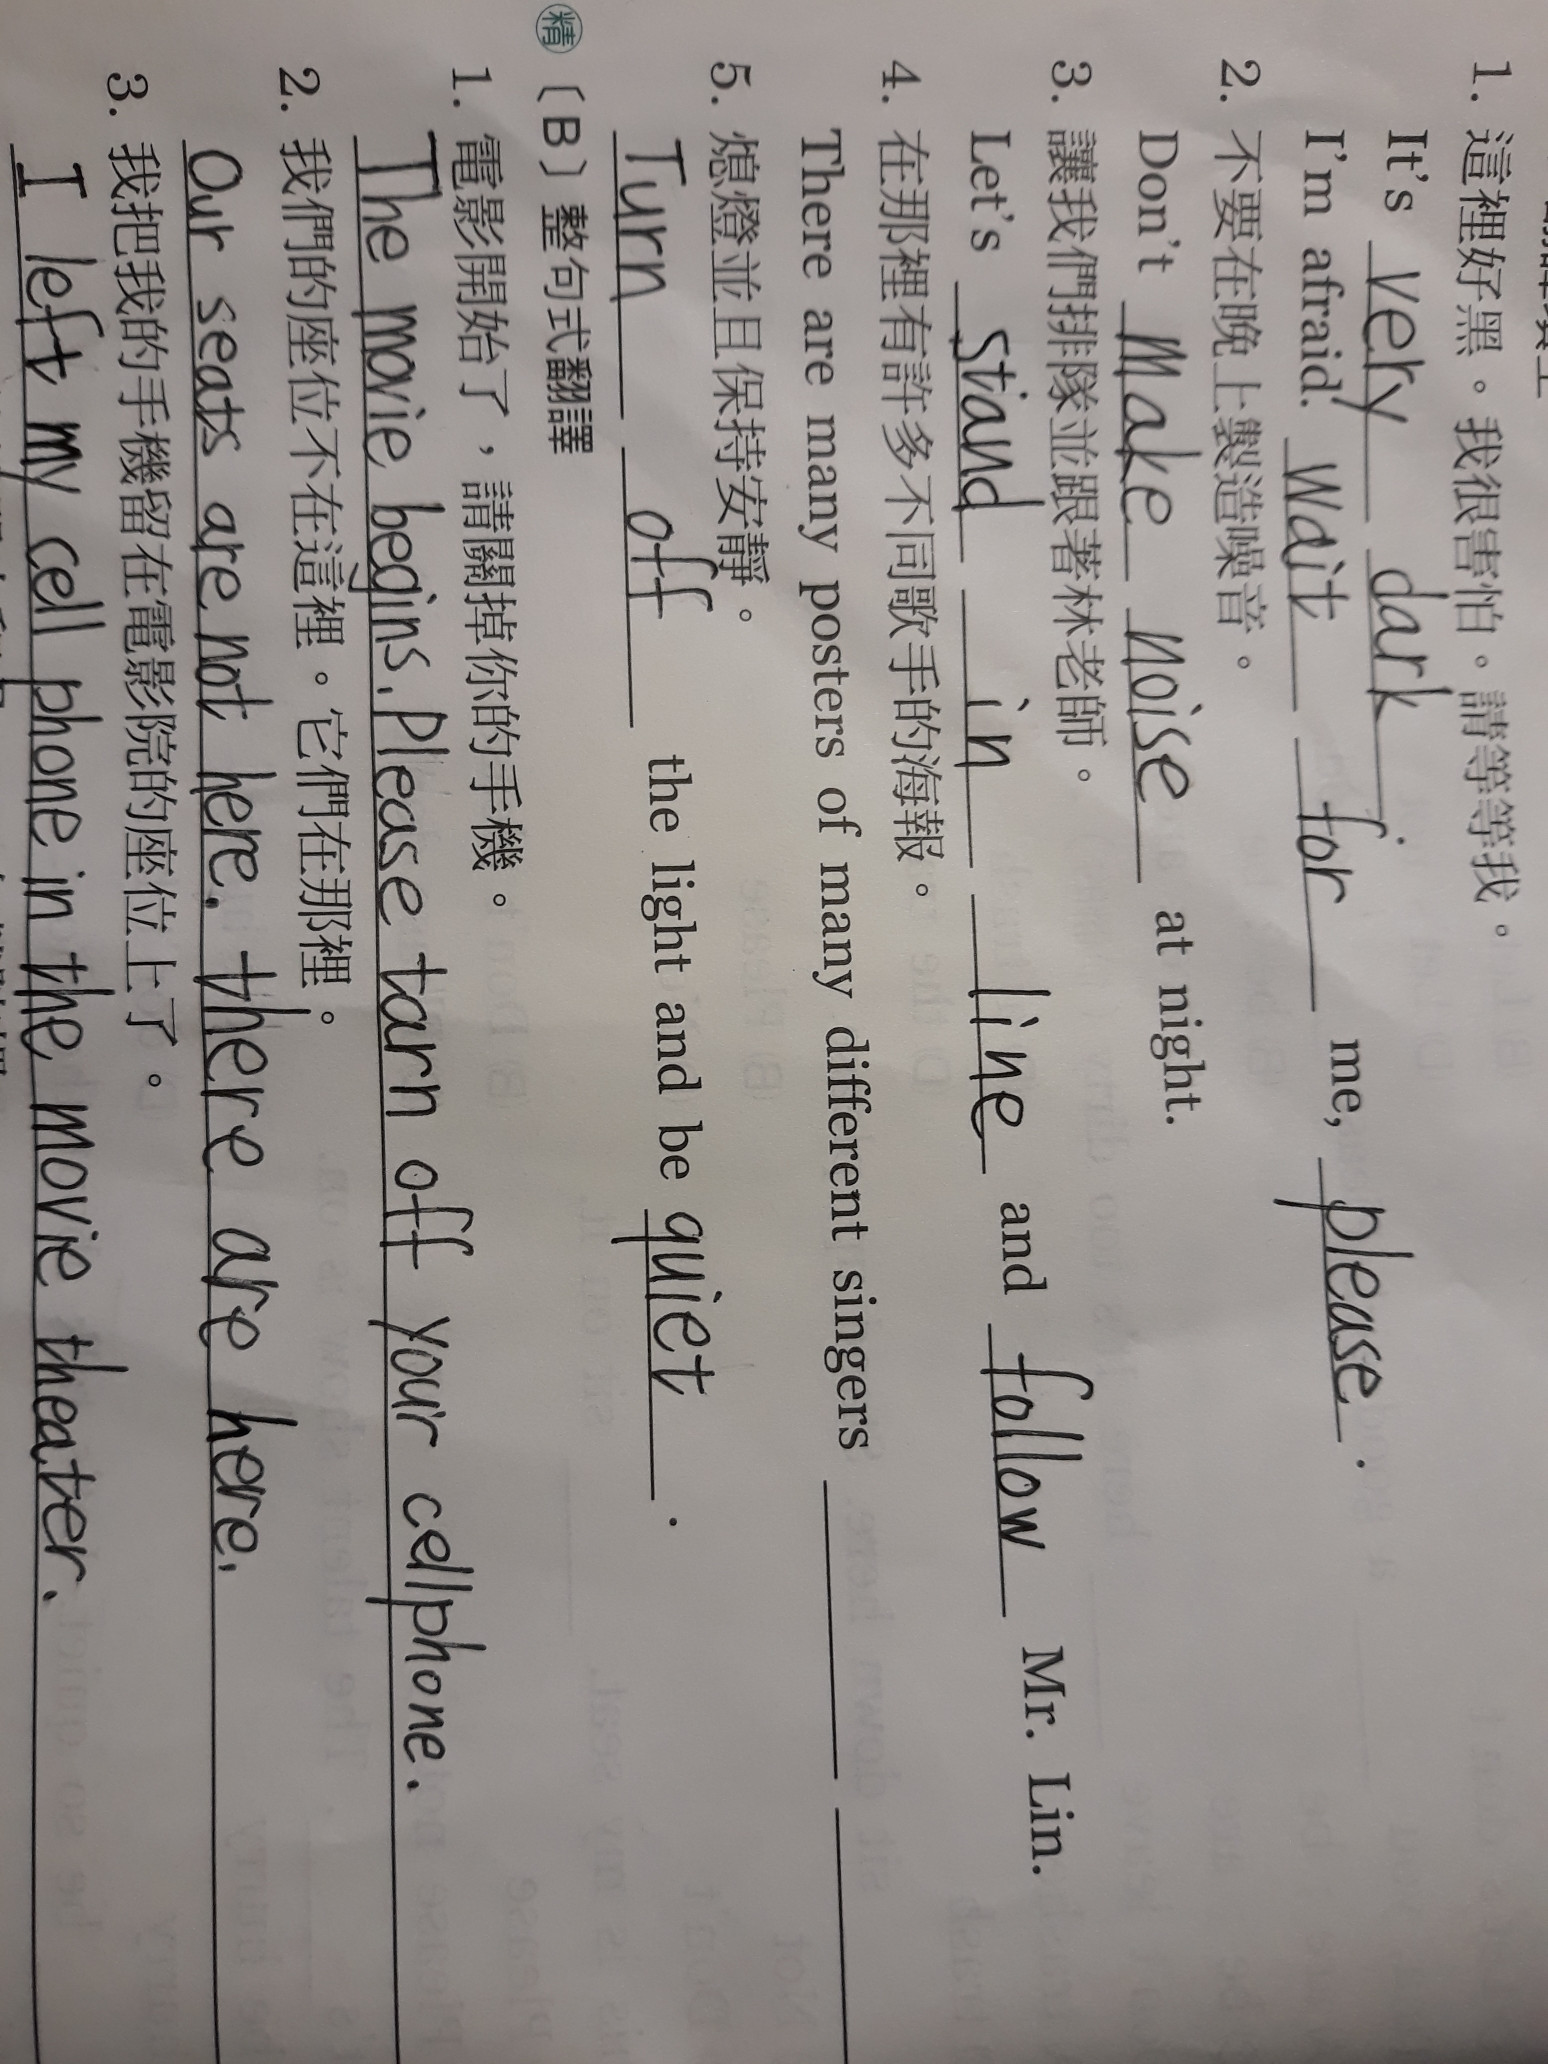 1. 這裡好黑。我很害怕。請等等我。
It's very dark.
I'm afraid. Wait for me, please.
2. 不要在晚上製造噪音。
Don't make noise at night.
3. 讓我們排隊並跟著林老師。
Let's stand in line and follow Mr. Lin.
4. 在那裡有許多不同歌手的海報。
There are many posters of many different singers
5. 熄燈並且保持安靜。
Turn off the light and be quiet.
精〔B〕整句式翻譯
1. 電影開始了，請關掉你的手機。
The movie begins. Please tarn off your cellphone.
2. 我們的座位不在這裡。它們在那裡。
Our seats are not here. there are here.
3. 我把我的手機留在電影院的座位上了。
I left my cell phone in the movie theater.